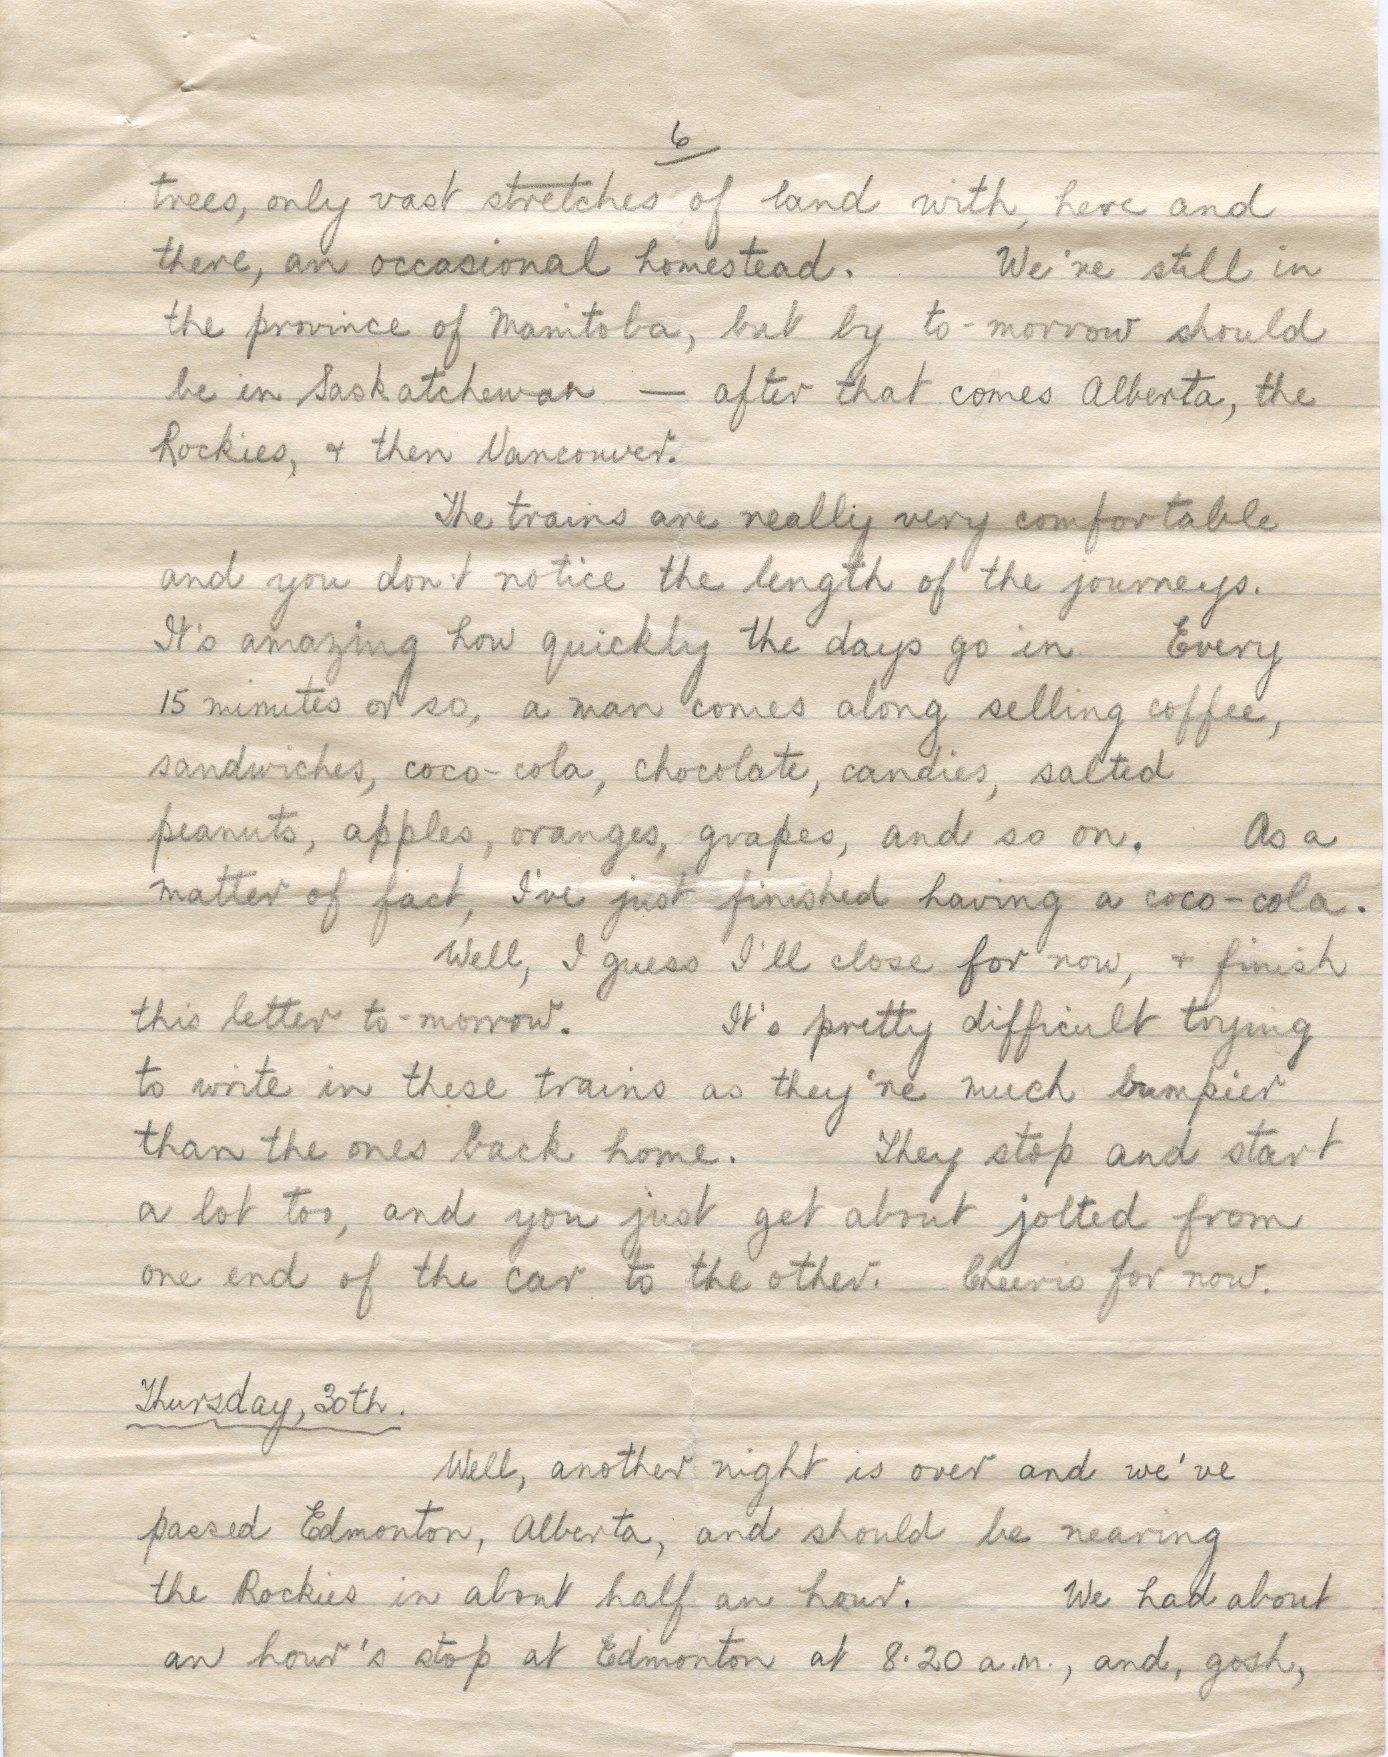 6
trees, only vast stretches of land with, here and
there, an occasional homestead. We're still in
the province of Manitoba, but by to-morrow should
be in Saskatchewan — after that comes Alberta, the
Rockies, & then Vancouver.
The trains are really very comfortable
and you don't notice the length of the journeys.
It's amazing how quickly the days go in Every
15 minutes or so, a man comes along selling coffee,
sandwiches, coco-cola, chocolate, candies, salted
peanuts, apples, oranges, grapes, and so on. As a
matter of fact, I've just finished having a coco-cola.
Well, I guess I'll close for now, & finish
this letter to-morrow. It's pretty difficult trying
to write in these trains as they're much bumpier
than the ones back home. They stop and start
a lot too, and you just get about jolted from
one end of the car to the other. Cheerio for now.
Thursday, 30th.
Well, another night is over and we've
passed Edmonton, Alberta, and should be nearing
the Rockies in about half an hour. We had about
an hour's stop at Edmonton at 8.20 a.m., and, gosh,